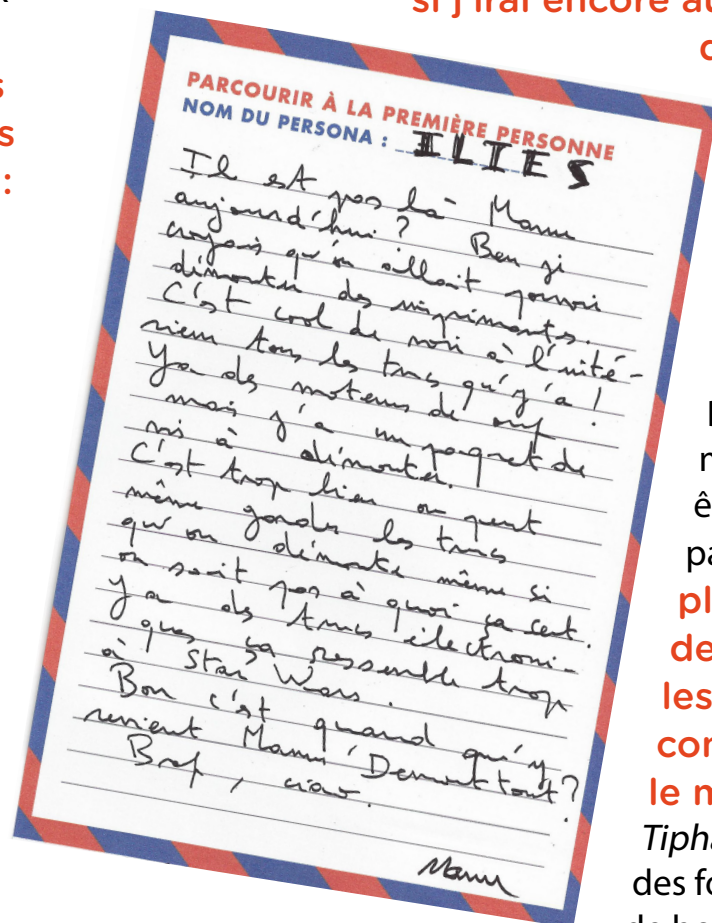 si j'irai encore au
PARCOURIR À LA PREMIÈRE PERSONNE
NOM DU PERSONA : ILIES
Il est pas là Manu
aujourd'hui ? Ben j'
croyais qu'on allait pouvoir
démonter des imprimantes.
C'est cool de voir à l'inté-
rieur tous les trucs qu'y'a !
Ya des moteurs de ouf
mais y'a un paquet de
vis à démonter.
C'est trop bien on peut
même garder les trucs
qu'on démonte même si
on sait pas à quoi ça sert.
Y a des trucs électroni-
ques ça ressemble trop
à Star Wars.
Bon c'est quand qu'y
revient Manu 'Demont tout'?
Bref, ciao.
Manu
pl
de
les
con
le m
Tipha
des fo